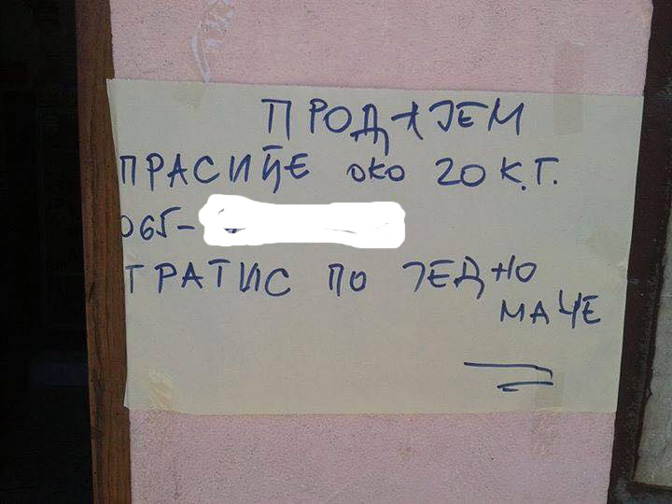 ПРОДАЈЕМ
ПРАСИЦЕ око 20 К.Г.
065-
ГРАТИС ПО ЈЕДНО
МАЧЕ